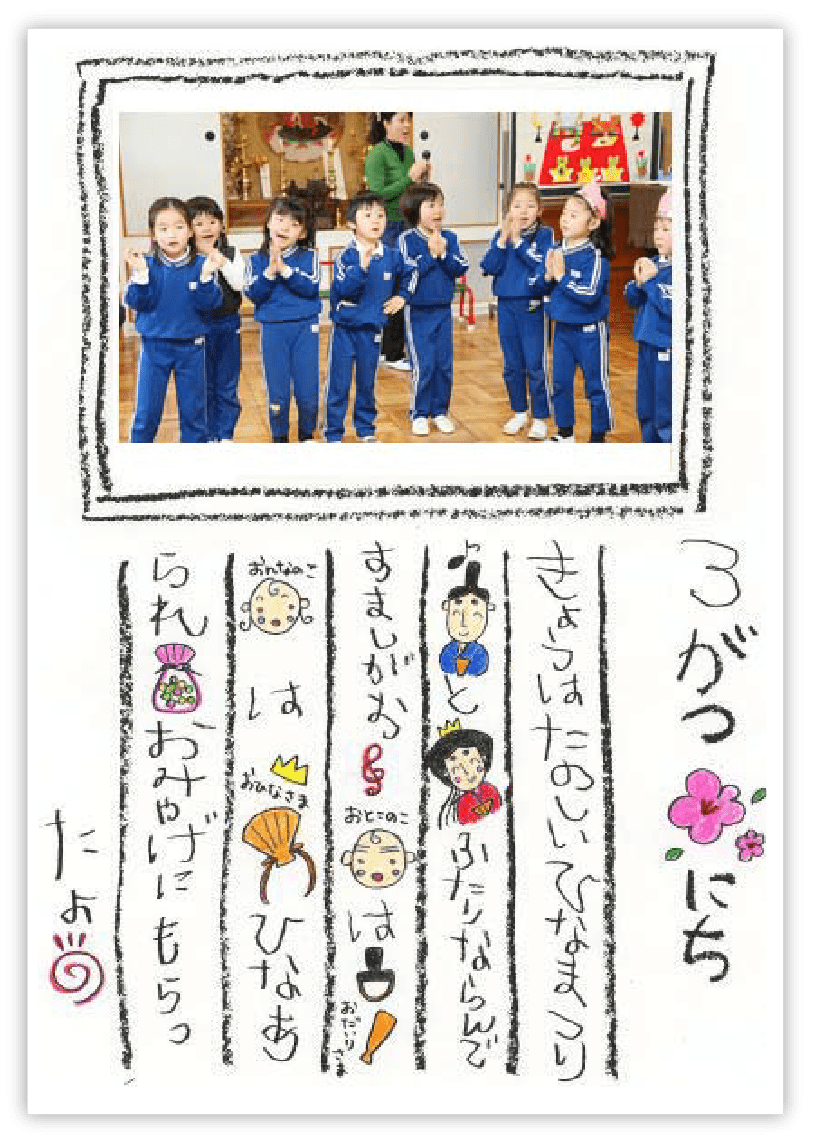 3がつ にち
きょうはたのしいひなまつり
と ふたりならんで
すましがお おとこのこ は おだいりさま
おんなのこ は おひなさま ひなあ
られ おみやげにもらっ
たよ